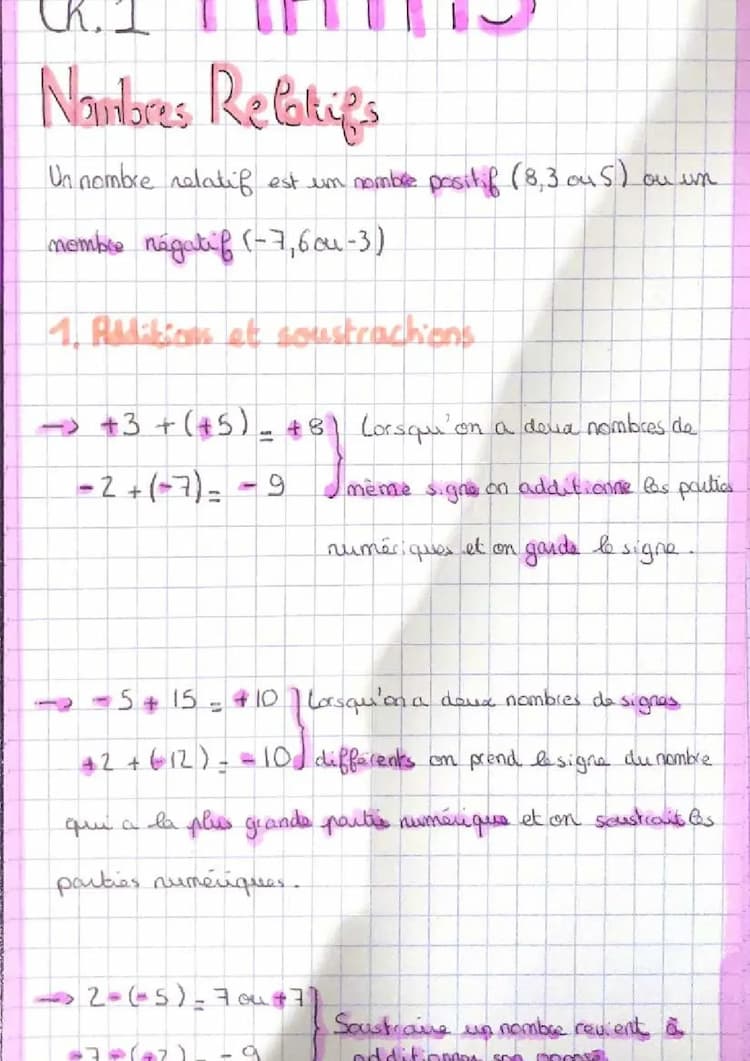 Ch. 1 MATHS
Nombres Relatifs
Un nombre relatif est un nombre positif (8,3 ou 5) ou un
nombre négatif (-7,6 ou -3)
1. Additions et soustrachions
→ +3 + (+5) = +8 } Lorsqu'on a deux nombres de
-2 + (-7) = -9 même signe on additionne les parties
numériques et on garde le signe.
→ -5 + 15 = +10 } Lorsqu'on a deux nombres de signes
+2 + (-12) = -10 différents on prend le signe du nombre
qui a la plus grande partie numérique et on soustrait les
parties numériques.
→ 2-(-5) = 7 ou +7 }
Soustraire un nombre revient à
-7-(+2) = -9 additionner son opposé